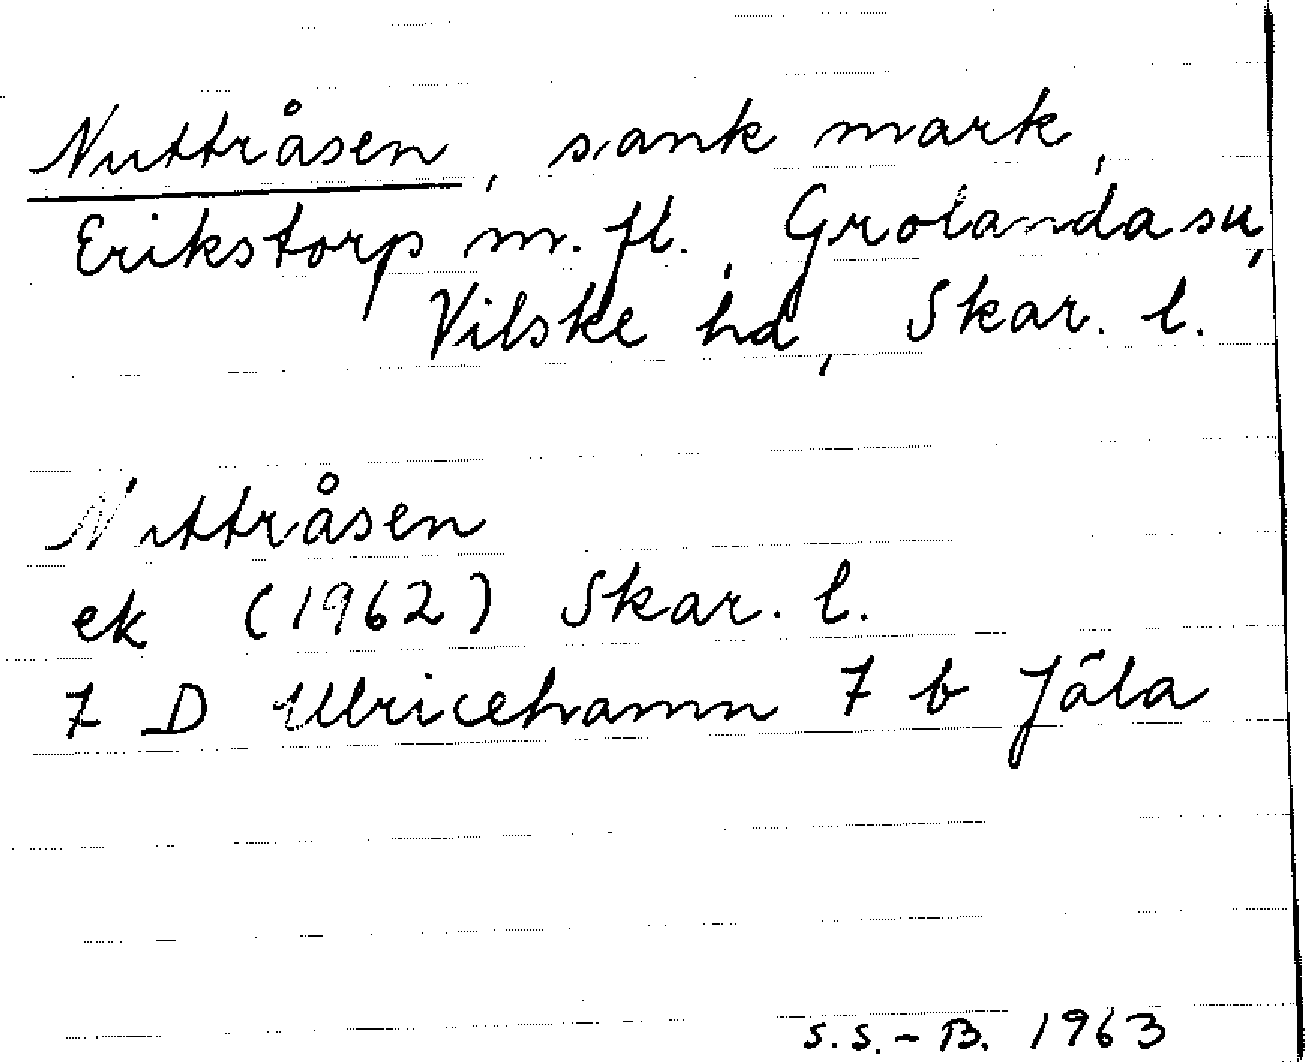 Nuttråsen, sank mark,
Erikstorp m. fl., Grolanda sn,
Vilske hd, Skar. l.
Nuttråsen
ek (1962) Skar. l.
7 D Ulricehamn 7 b Jäla
S.S.-B. 1963